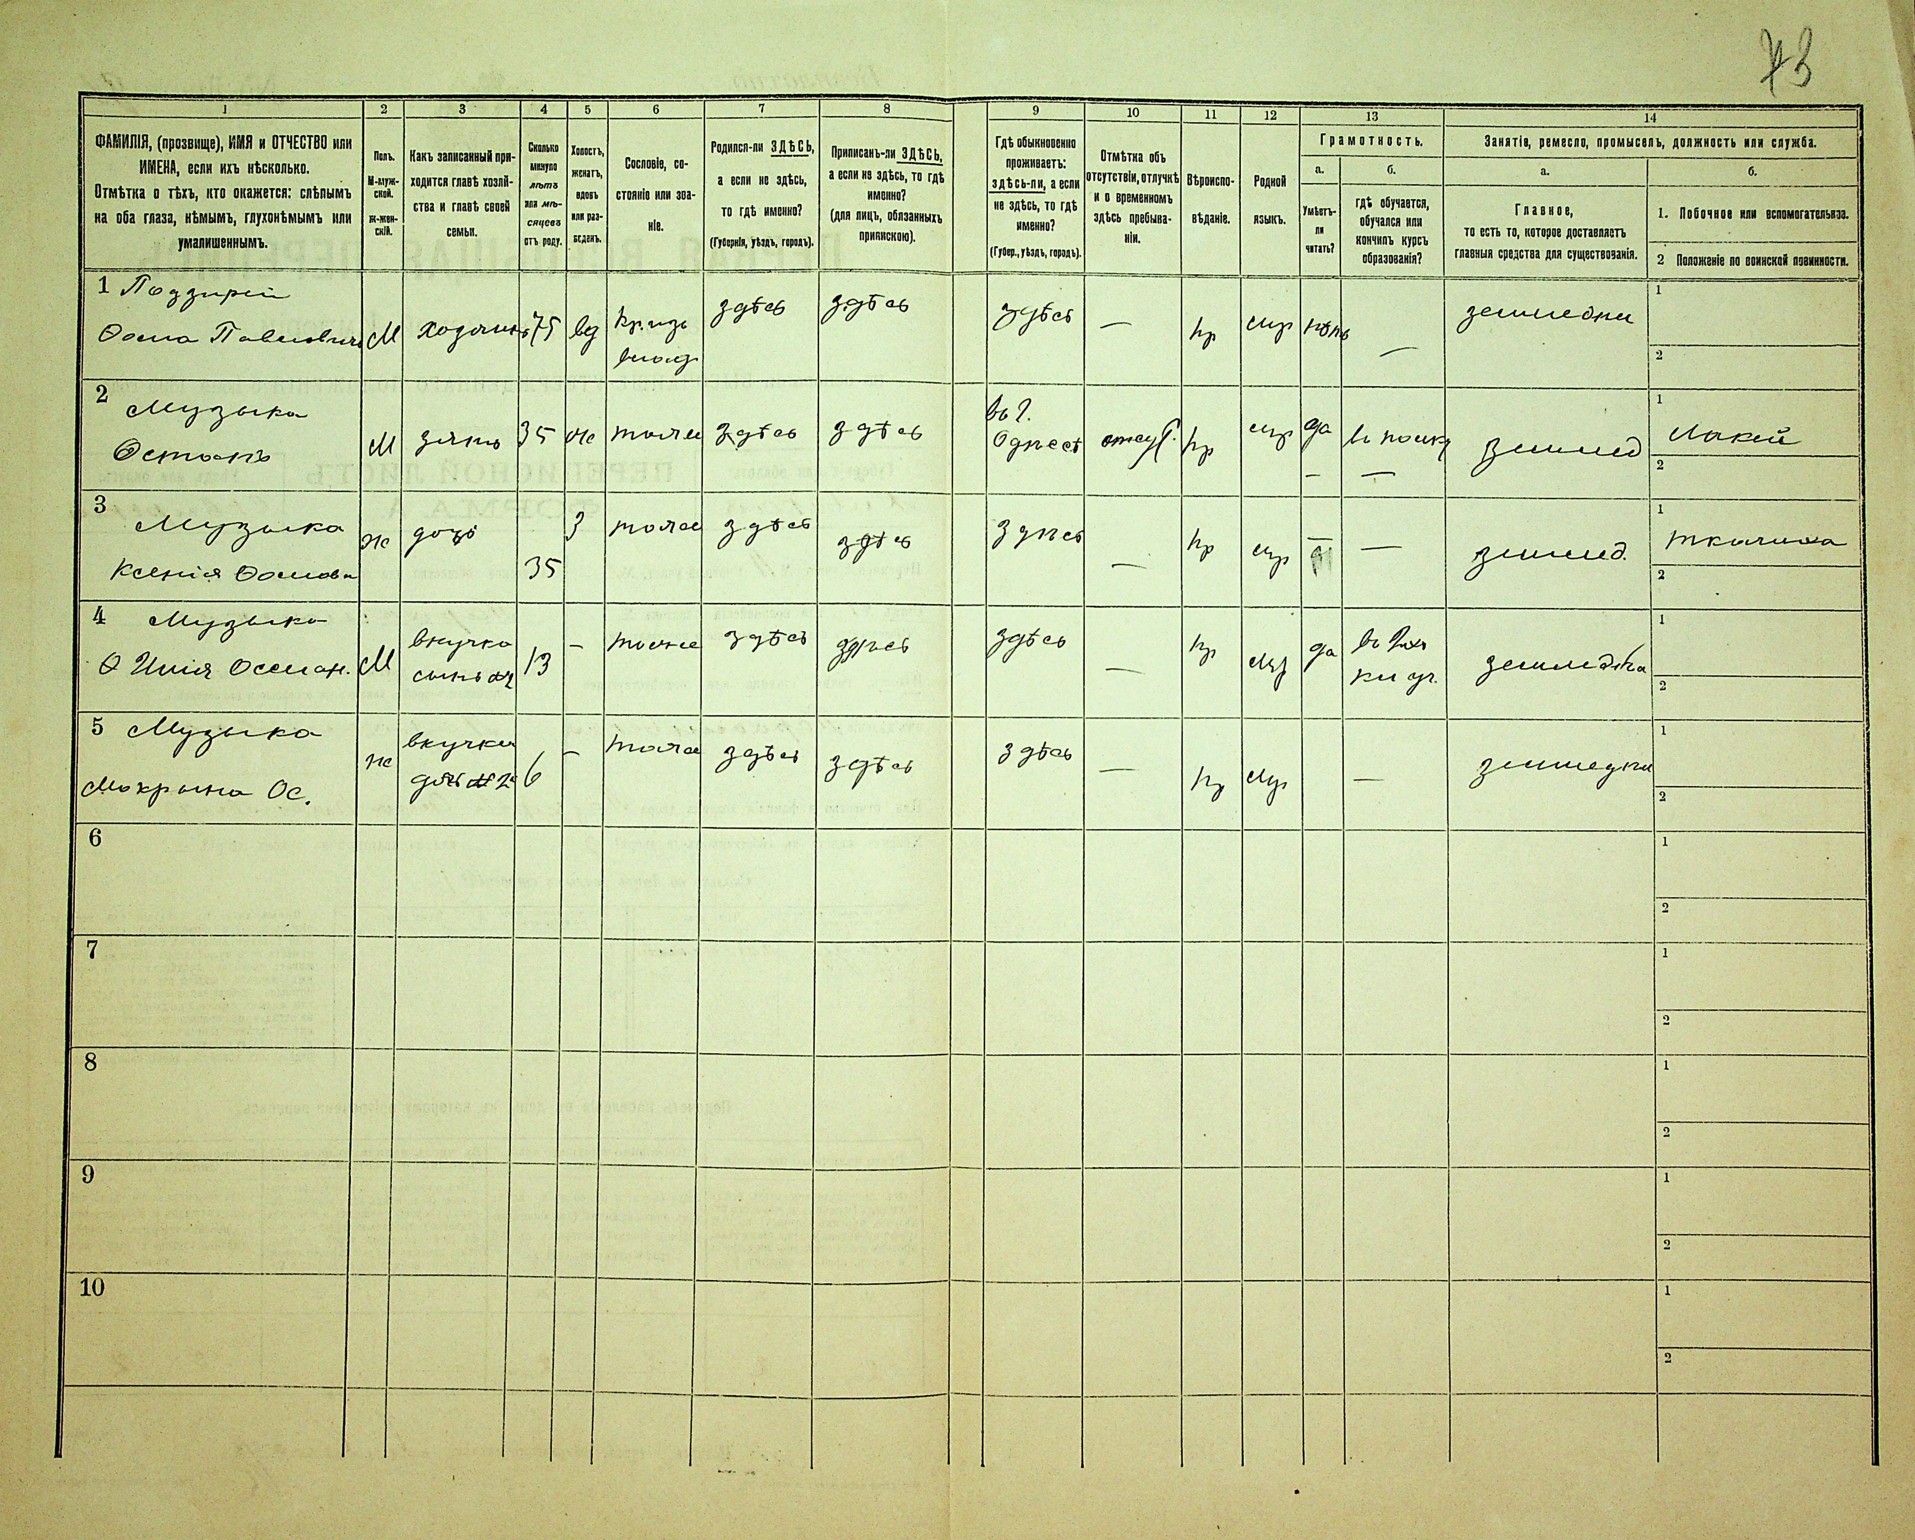 73
1 2 3 4 5 6 7 8 9 10 11 12 13 14
ФАМИЛІЯ, (прозвище), ИМЯ и ОТЧЕСТВО или
ИМЕНА, если ихъ нѣсколько.
Отмѣтка о тѣхъ, кто окажется: слѣпымъ
на оба глаза, нѣмымъ, глухонѣмымъ или
умалишеннымъ.
Полъ.
М-муж-
ской.
Ж-жен-
скій.
Какъ записанный при-
ходится главѣ хозяй-
ства и главѣ своей
семьи.
Сколько
минуло
лѣтъ
или мѣ-
сяцевъ
отъ роду.
Холостъ,
женатъ,
вдовъ
или раз-
веденъ.
Сословіе, со-
стояніе или зва-
ніе.
Родился-ли ЗДѢСЬ,
а если не здѣсь,
то гдѣ именно?
(Губернія, уѣздъ, городъ).
Приписанъ-ли ЗДѢСЬ,
а если не здѣсь, то гдѣ
именно?
(для лицъ, обязанныхъ
припискою).
Гдѣ обыкновенно
проживаетъ:
здѣсь-ли, а если
не здѣсь, то гдѣ
именно?
(Губер., уѣздъ, городъ).
Отмѣтка объ
отсутствіи, отлучкѣ
и о временномъ
здѣсь пребыва-
ніи.
Вѣроиспо-
вѣданіе.
Родной
языкъ.
Грамотность.
а.
Умѣетъ-
ли
читать?
б.
гдѣ обучается,
обучался или
кончилъ курсъ
образованія?
Занятіе, ремесло, промыселъ, должность или служба.
а.
Главное,
то есть то, которое доставляетъ
главныя средства для существованія.
б.
1. Побочное или вспомогательное.
2 Положеніе по воинской повинности.
1
Ѳома Павловичъ М хозяинъ 75 вд здѣсь здѣсь здѣсь — пр мр —
1
2
2 Музыка
Остапъ М зять 35 ж тоже здѣсь здѣсь въ г. Одессѣ отсут. пр мр да — — землед
1 Лакей
2
3 Музыка
Ксенія Ѳомова ж дочь 35 з тоже здѣсь здѣсь здѣсь — пр мр — — землед.
1 ткачиха
2
4 Музыка
М внучка сынъ №2 13 — тоже здѣсь здѣсь здѣсь — пр мр да
1
2
5 Музыка
Мокрына Ос. ж внучка дочь №2 6 — тоже здѣсь здѣсь здѣсь — пр мр —
1
2
6
1
2
7
1
2
8
1
2
9
1
2
10
1
2